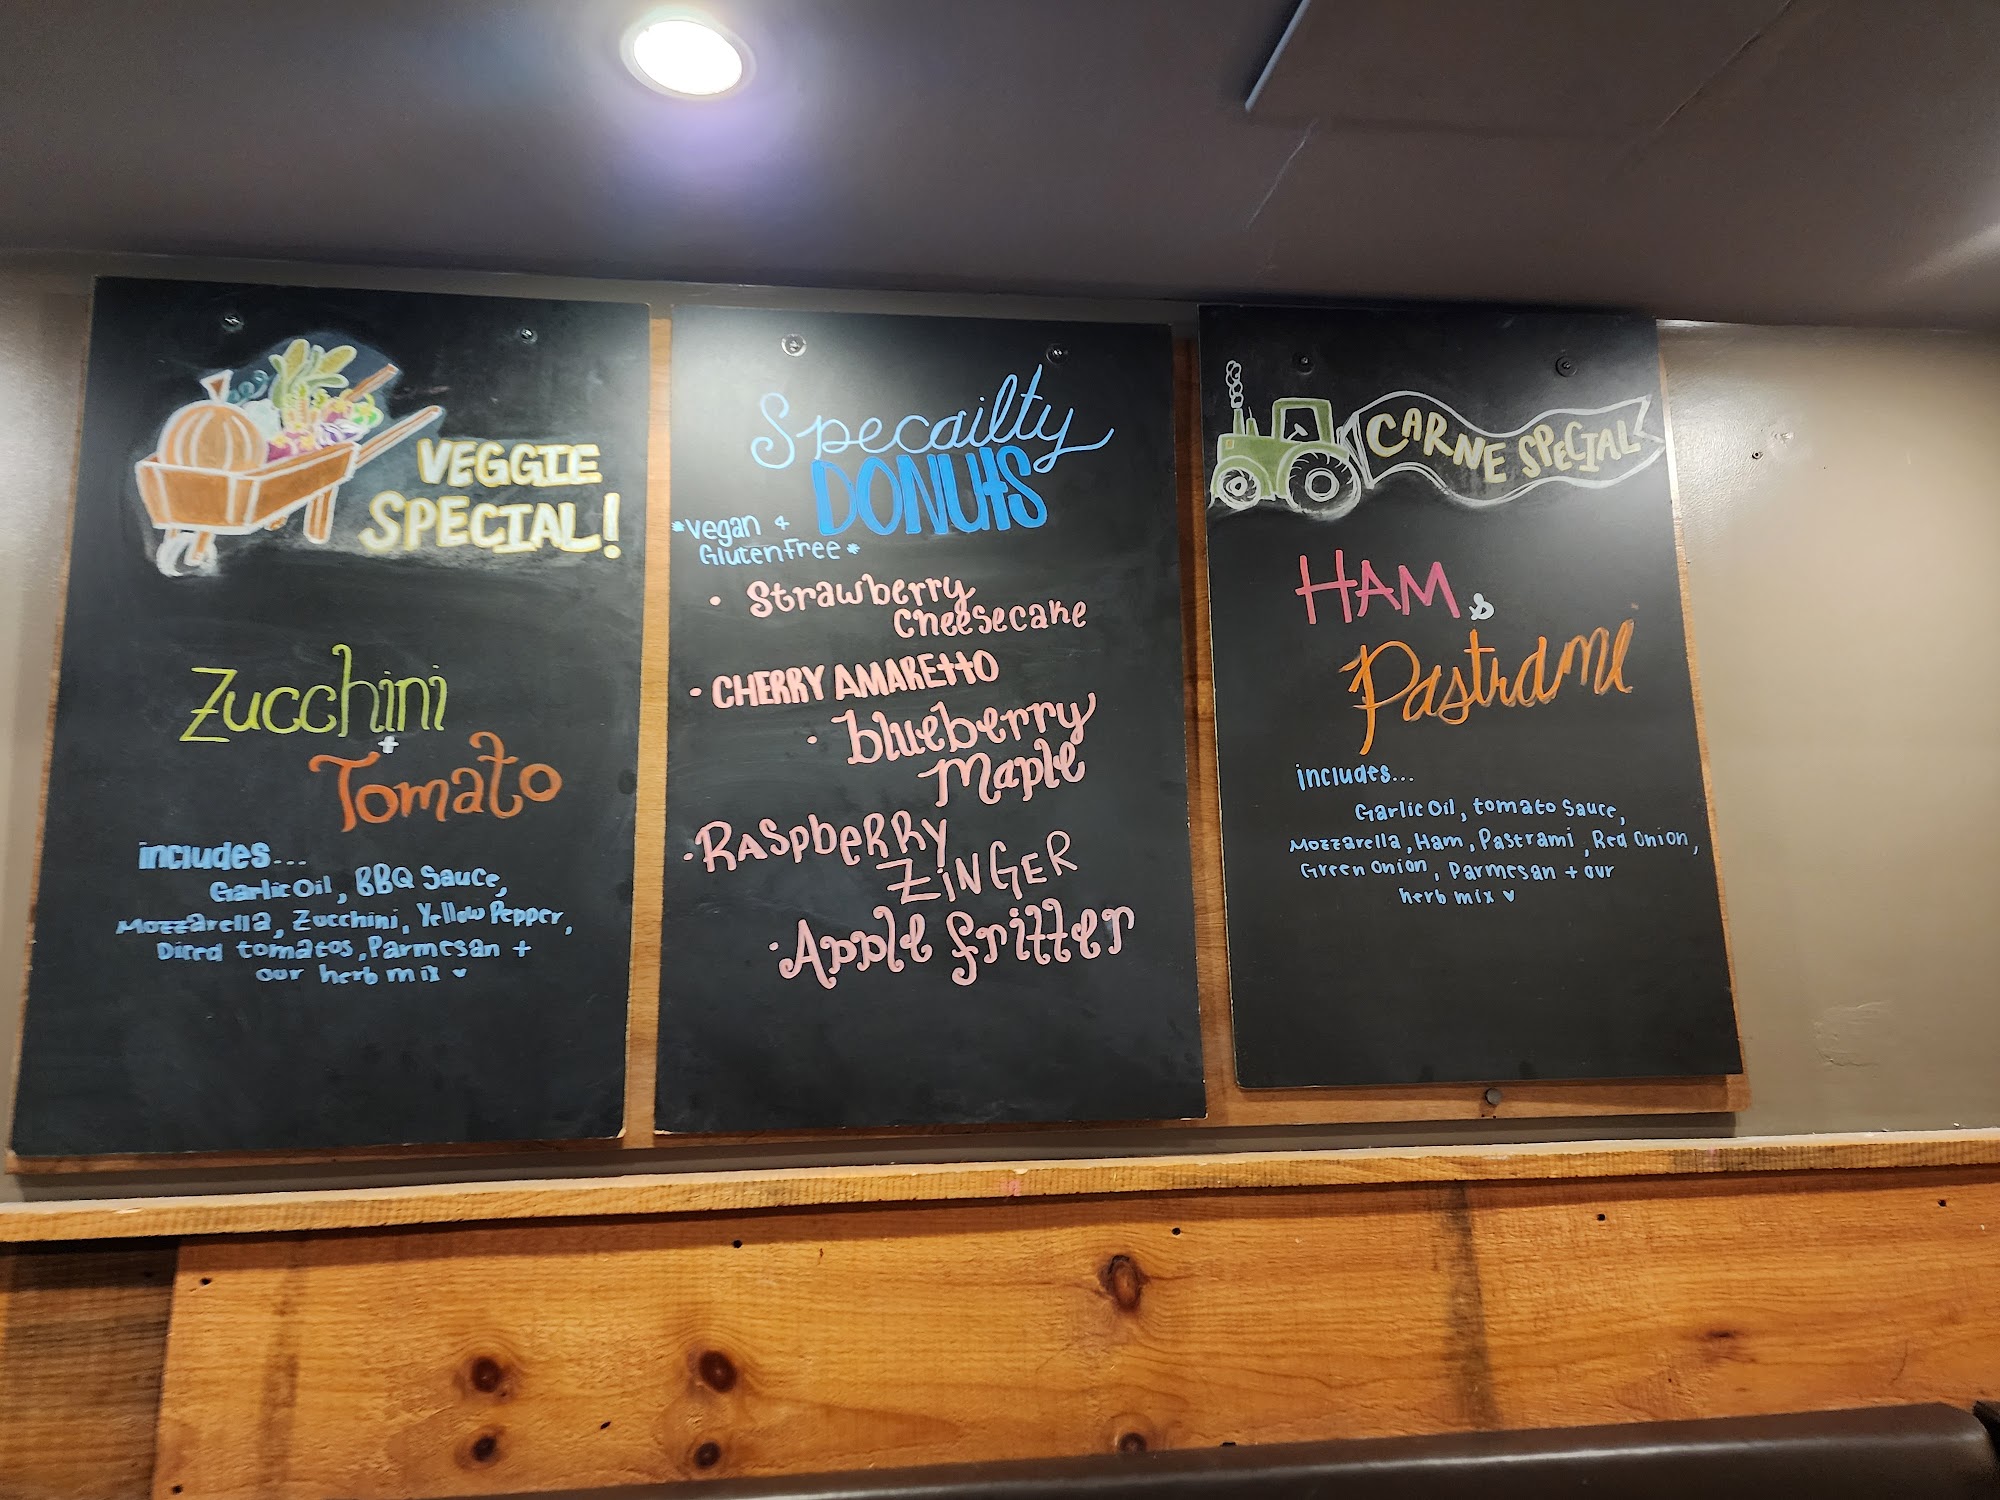 VEGGIE
SPECIAL!
Zucchini
+
Tomato
includes...
Garlic Oil, BBQ Sauce,
Mozzarella, Zucchini, Yellow Pepper,
Diced tomatos, Parmesan +
our herb mix ♥
Specailty
DONUts
*Vegan +
Gluten Free*
• Strawberry
Cheesecake
• CHERRY AMAREttO
• blueberry
Maple
• RaspbeRRy
ZiNGER
• Apple fritter
CARNE SPECIAL
HAM &
Pastrami
includes...
Garlic Oil, tomato Sauce,
Mozzarella, Ham, Pastrami, Red Onion,
Green Onion, Parmesan + our
herb mix ♥